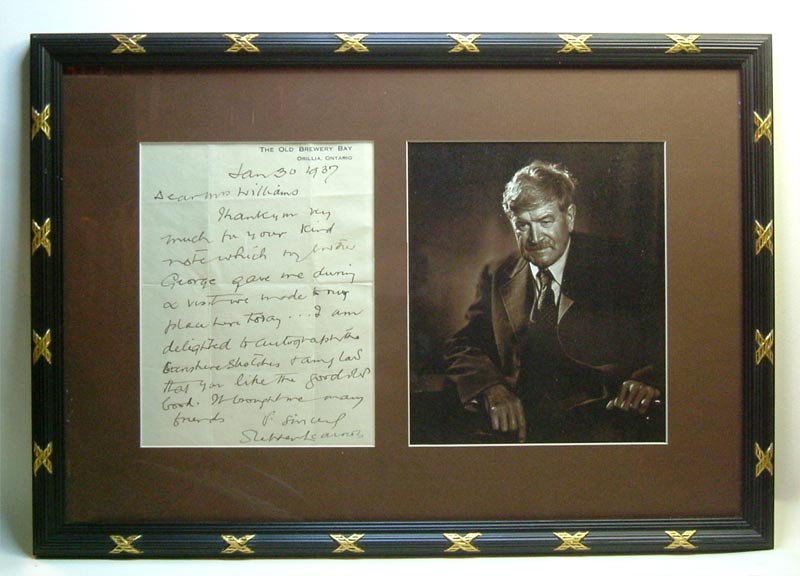 THE OLD BREWERY BAY
ORILLIA, ONTARIO
Jan 30 1937
Dear Mrs Williams
Thank you very
much for your kind
note which my brother
George gave me during
a visit we made to my
place here today... I am
delighted to autograph the
Sunshine Sketches & am glad
that you like the good old
book. It brought me many
friends
Sincerely
Stephen Leacock